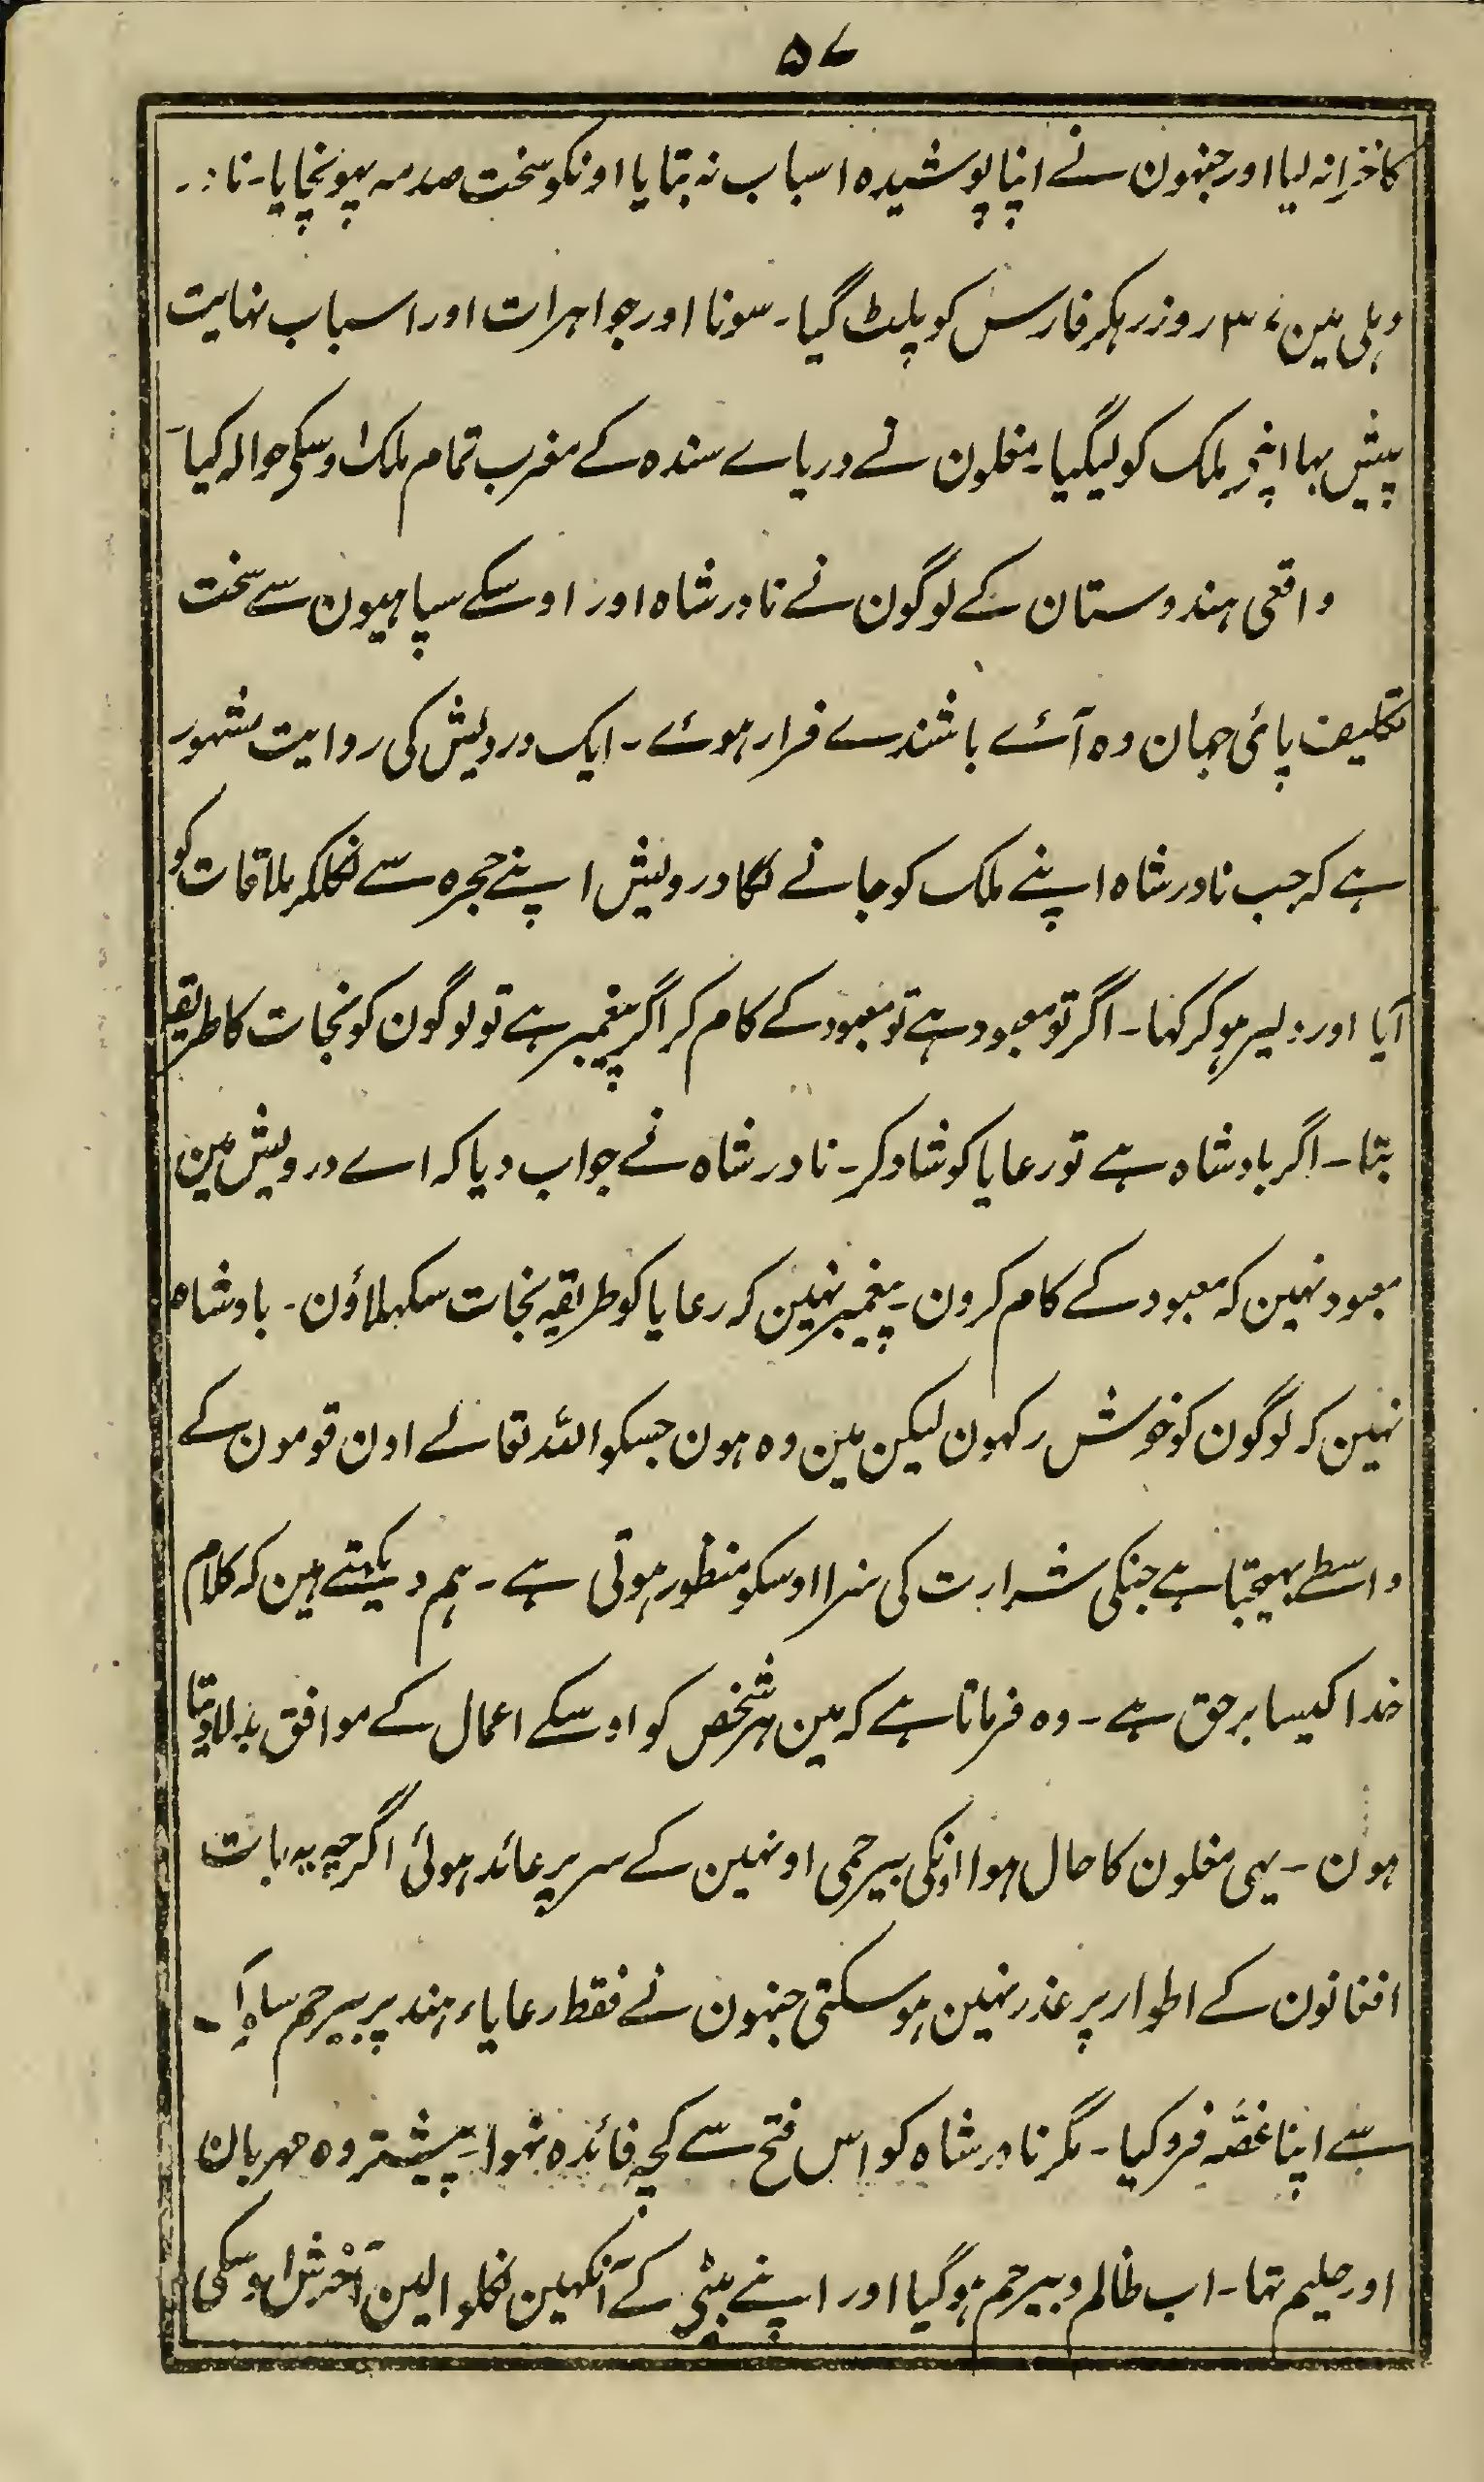 ۵۷
کا خزانہ لیا اور جنہون نے اپنا پوشیدہ اسباب نہ بتایا اونکو سخت صدمہ پہونچایا۔
دہلی مین ۳۷ روز رہکر فارس کو پلٹ گیا۔ سونا اور جواہرات اور اسباب نہایت
بیش بہا اپنے ملک کو لیگیا۔ مغلون نے دریاے سندہ کے مغرب تمام ملک اوسکی حوالہ کیا۔
واقعی ہندوستان کے لوگون نے نادر شاہ اور اوسکے سپاہیون سے سخت
تکلیف پائی جہان وہ آئے باشندے فرار ہوئے۔ ایک درویش کی روایت مشہور
ہے کہ جب نادر شاہ اپنے ملک کو جانے لگا درویش اپنے حجرہ سے نکلکر ملاقات کو
آیا اور دلیر ہوکر کہا۔ اگر تو معبود ہے تو معبود کے کام کر اگر پیغمبر ہے تو لوگون کو نجات کا طریقہ
بتا۔ اگر بادشاہ ہے تو رعایا کو شاد کر۔ نادر شاہ نے جواب دیا کہ اے درویش مین
معبود نہین کہ معبود کے کام کرون۔ پیغمبر نہین کہ رعایا کو طریقہ نجات سکہلاؤن۔ بادشاہ
نہین کہ لوگون کو خوش رکہون لیکن مین وہ ہون جسکو اللہ تعالے اون قومون کے
واسطے بہیجتا ہے جنکی شرارت کی سزا اوسکو منظور ہوتی ہے۔ ہم دیکہتے ہین کہ کلام
خدا کیسا برحق ہے۔ وہ فرماتا ہے کہ مین ہر شخص کو اوسکے اعمال کے موافق بدلا دیتا
ہون۔ یہی مغلون کا حال ہوا اونکی بیرحمی اونہین کے سر پر عائد ہوئی اگرچہ یہ بات
افغانون کے اطوار پر عذر نہین ہو سکتی جنہون نے فقط رعایاء ہند پر بیرحم
سے اپنا غصّہ فرو کیا۔ مگر نادر شاہ کو اس فتح سے کچہ فائدہ نہوا۔ پیشتر وہ مہربان
اور حلیم تہا۔ اب ظالم و بیرحم ہو گیا اور اپنے بیٹے کے آنکہین نکلوا لین آخرش اوسکی